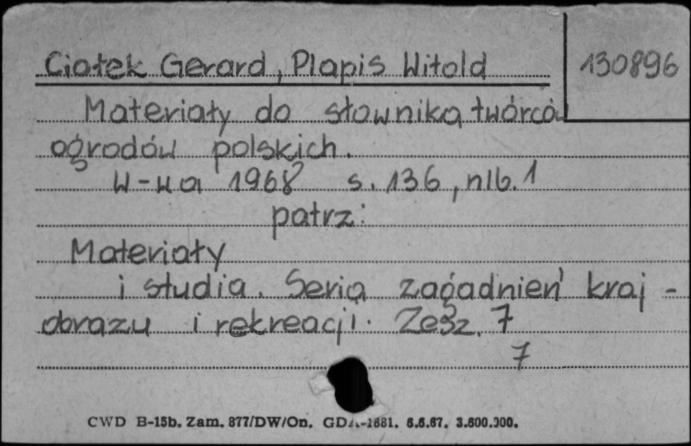 Ciołek Gerard, Plapis Witold
130896
Materiały do słownika twórców
ogrodów polskich.
W-wa 1968 s. 136, nlb. 1
patrz:
Materiały
i studia. Seria zagadnień kraj-
obrazu i rekreacji. Zesz. 7
7
CWD B-15b. Zam. 877/DW/On. GDA-1681. 6.6.67. 3.600.000.